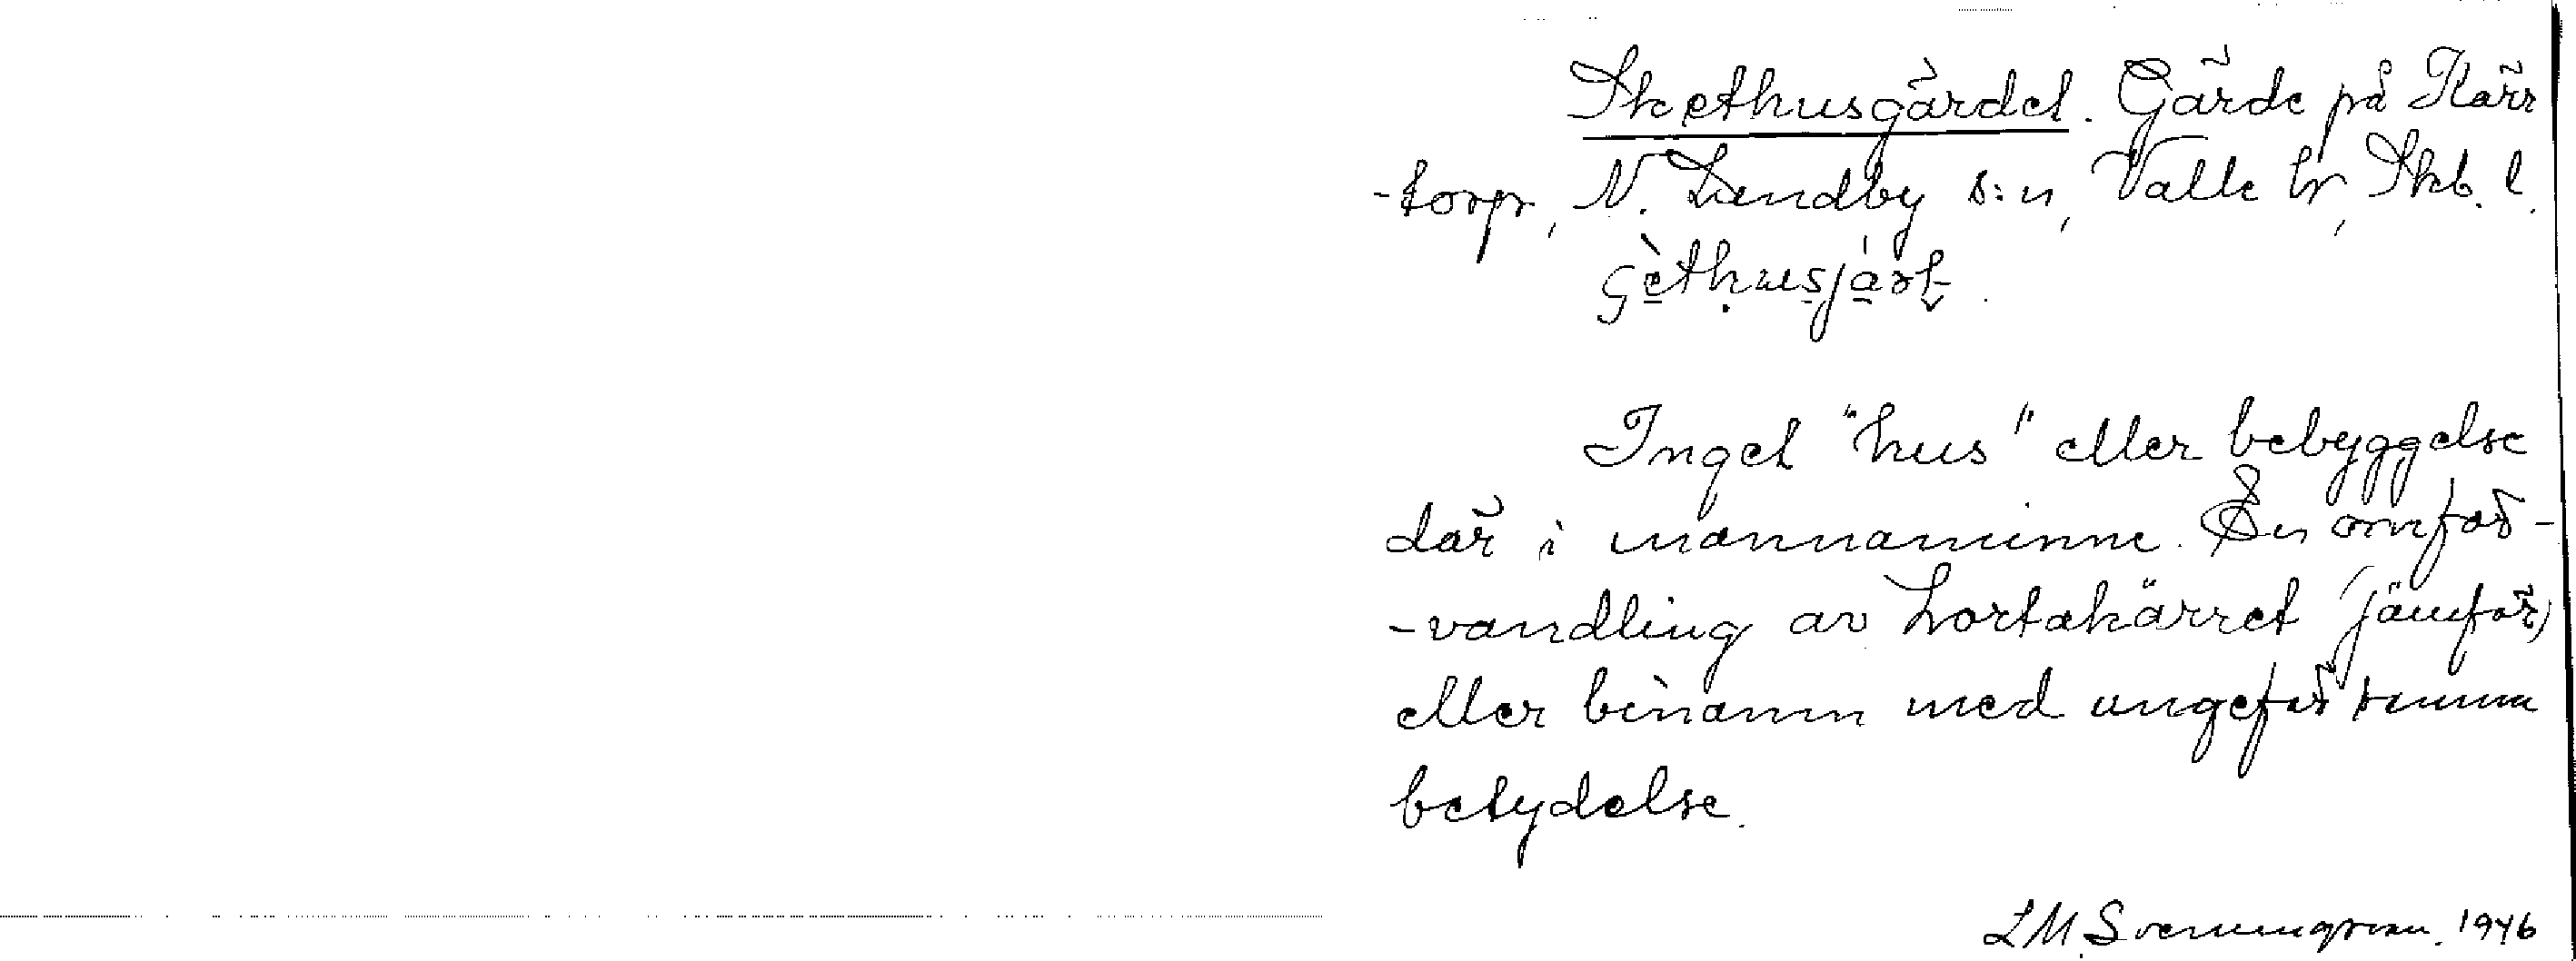 Skethusgärdet. Gärde på Kärr
-torp, N. Lundby s:n, Valle hr, Skb. l.
Ingel "hus" eller bebyggelse
där i mannaminne. En omför-
-vandling av Lortakärret (jämför)
eller binamn med ungefär samma
betydelse.
LM Svenungsson. 1946